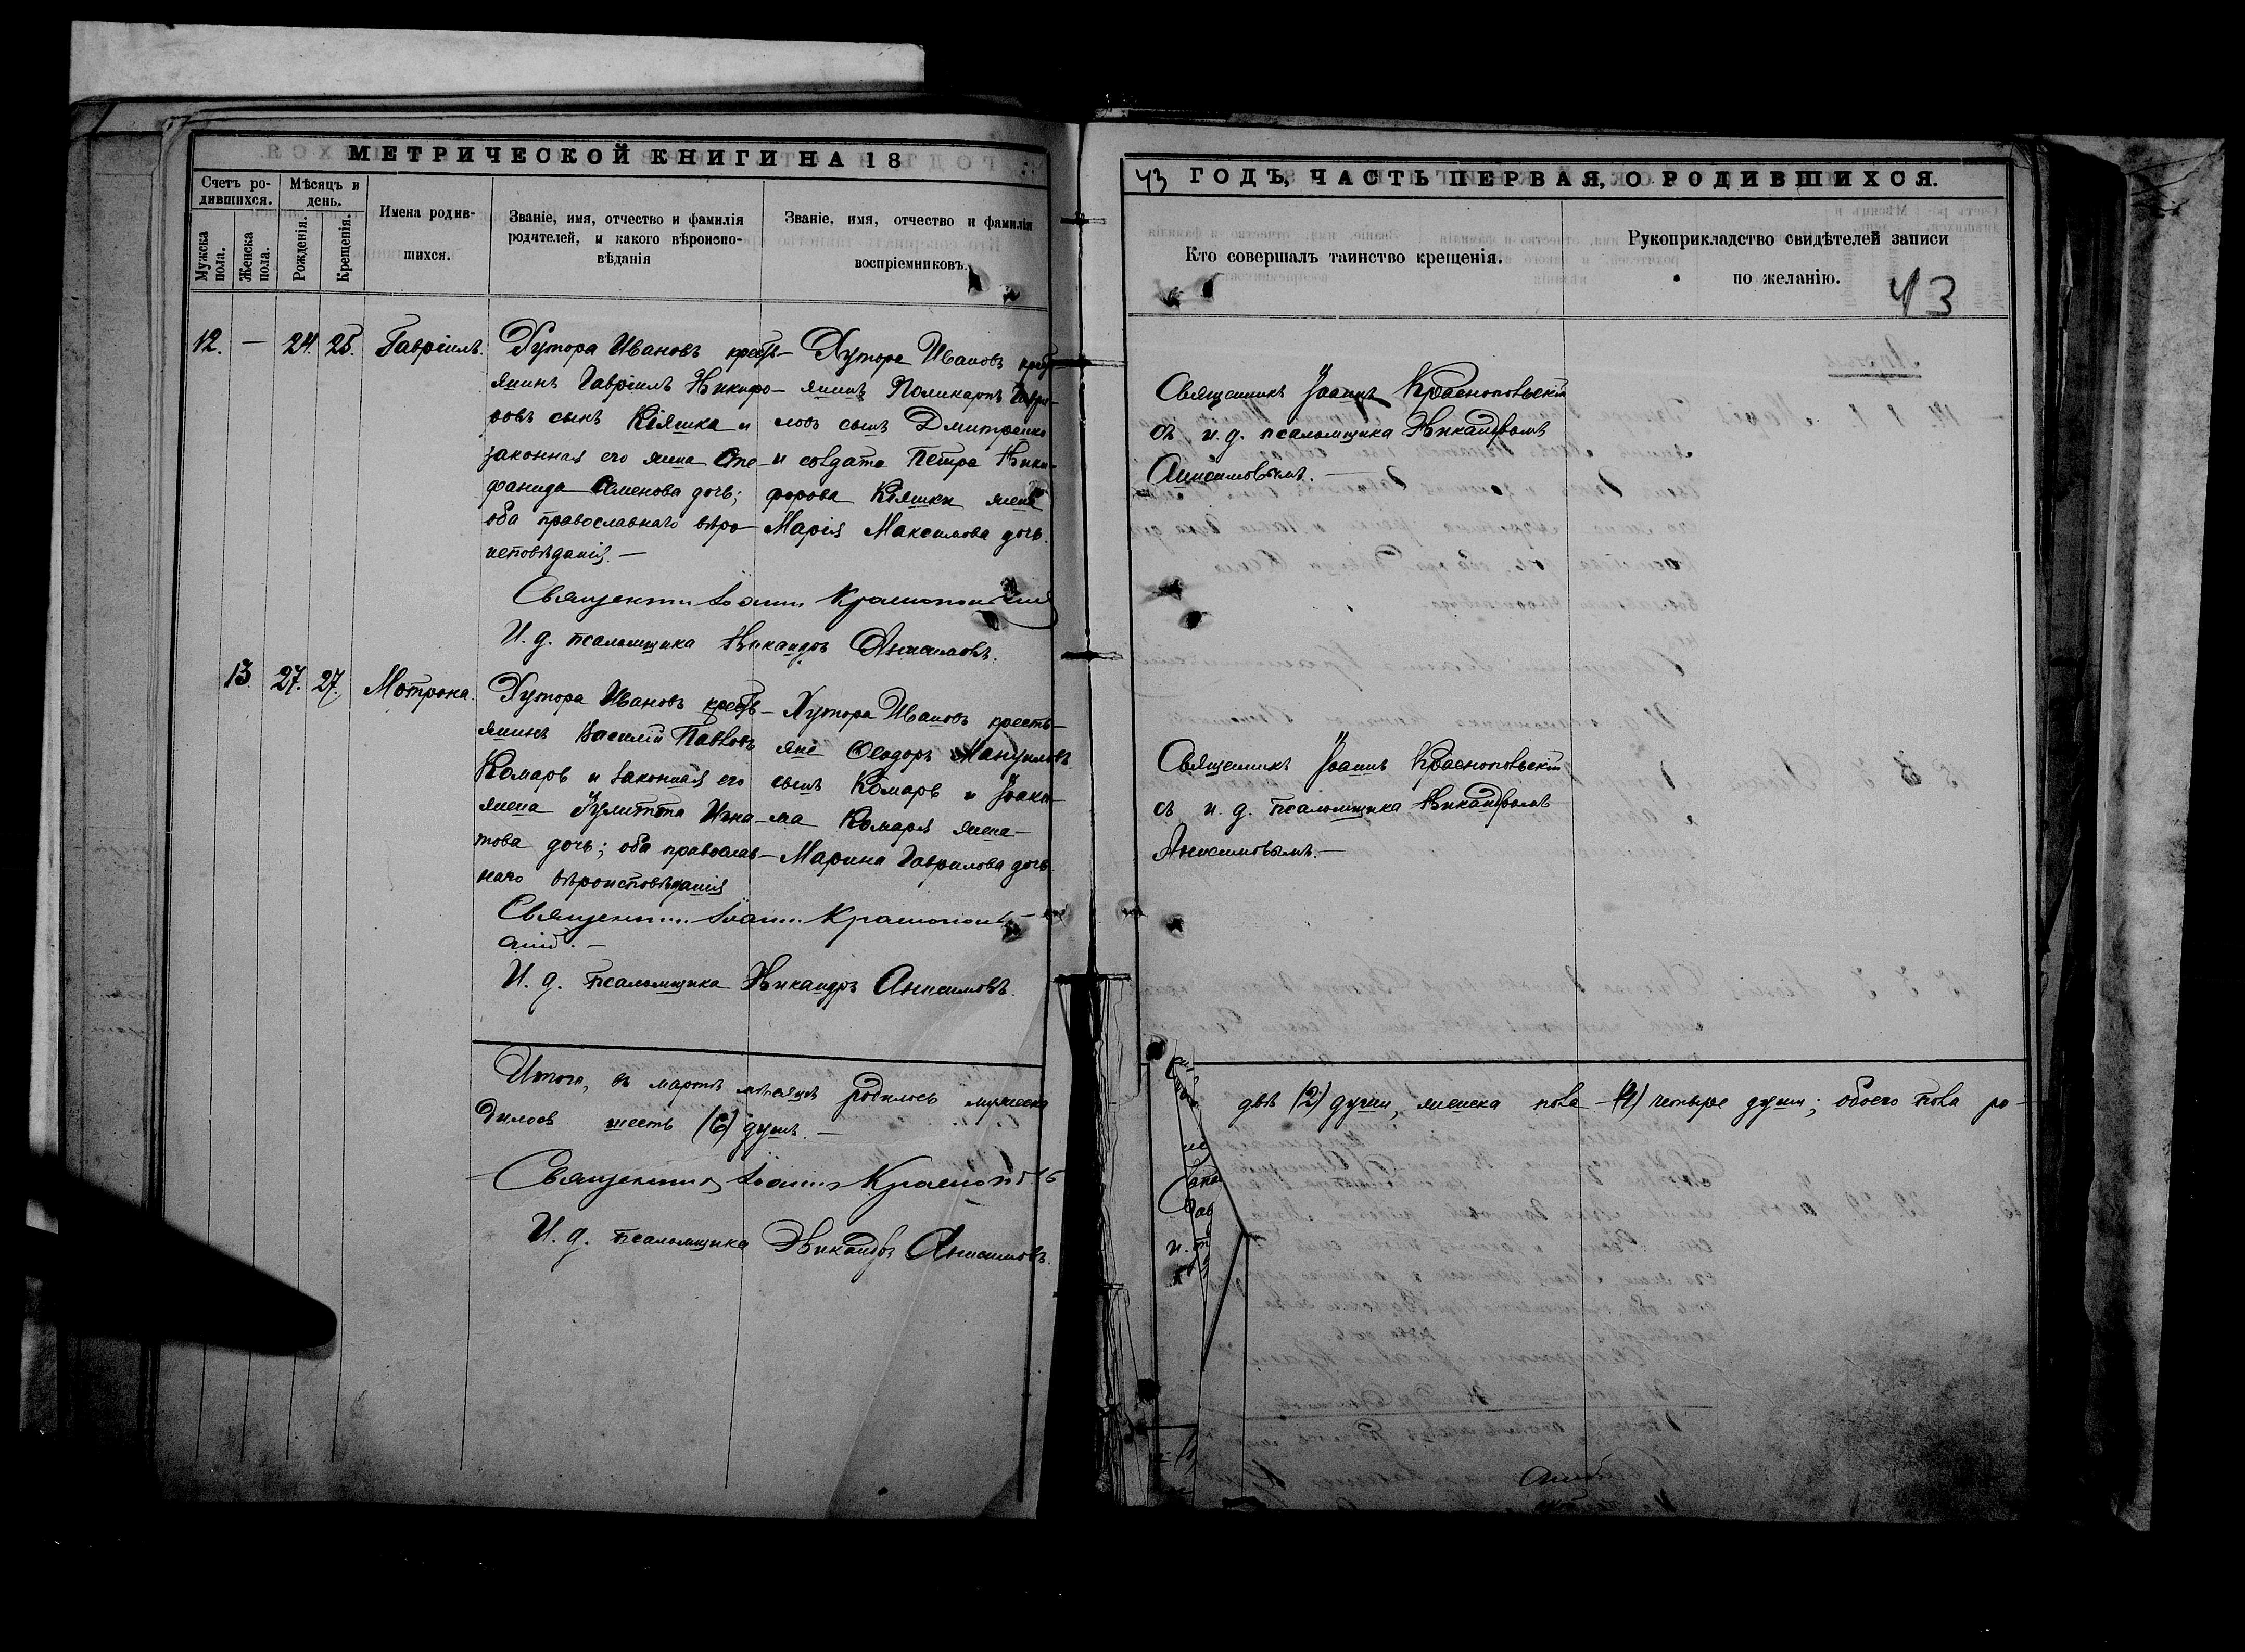 МЕТРИЧЕСКОЙ КНИГИ НА 18
Счетъ ро-
дившихся.
Мѣсяцъ и
день.
Мужска
пола.
Женска
пола.
Рожденія.
Крещенія.
Имена родив-
шихся.
Званіе, имя, отчество и фамилія
родителей, и какого вѣроиспо-
вѣданія
Званіе, имя, отчество и фамилія
воспріемниковъ.
12. — 24. 25. Гавріилъ.
Хутора Ивановъ кресть-
янинъ Гавріилъ Никифо-
ровъ сынъ Кіяшка и
законная его жена Сте-
фанида Семенова дочь;
оба православнаго вѣро-
исповѣданія. —
Хутора Ивановъ
янинъ Поликарпъ Гаври-
ловъ сынъ Дмитренко
и солдата Петра Ники-
форова Кіяшки жена
Марія Максимова дочь.
Священникъ Іоаннъ Краснопольскій
И. д. псаломщика Никандръ Анисимовъ.
13. 27. 27. Мотрона.
Хутора Ивановъ кресть-
янинъ Василій Павловъ
Комаръ и законная его
жена Іулитта Игна-
това дочь; оба православ-
наго вѣроисповѣданія
Хутора Ивановъ кресть-
яне Ѳеодоръ Мануиловъ
сынъ Комаръ и Іоаки-
ма Комаря жена-
Марина Гаврилова дочь.
Священникъ Іоаннъ Краснополь-
скій. —
И. д. псаломщика Никандръ Анисимовъ.
Итого, въ мартѣ мѣсяцѣ родилось мужеска
дилось шесть (6) душъ. —
Священникъ Іоаннъ
И. д. псаломщика Никандръ Анисимовъ.
43 ГОДЪ, ЧАСТЬ ПЕРВАЯ, О РОДИВШИХСЯ.
Кто совершалъ таинство крещенія.
Рукоприкладство свидѣтелей записи
по желанію.
43
Священникъ Іоаннъ Краснопольскій
съ и. д. псаломщика Никандромъ
Анисимовымъ. —
Священникъ Іоаннъ Краснопольскій
съ и. д. псаломщика Никандромъ
Анисимовымъ. —
двѣ (2) души, женска пола — (4) четыре души; обоего пола ро-